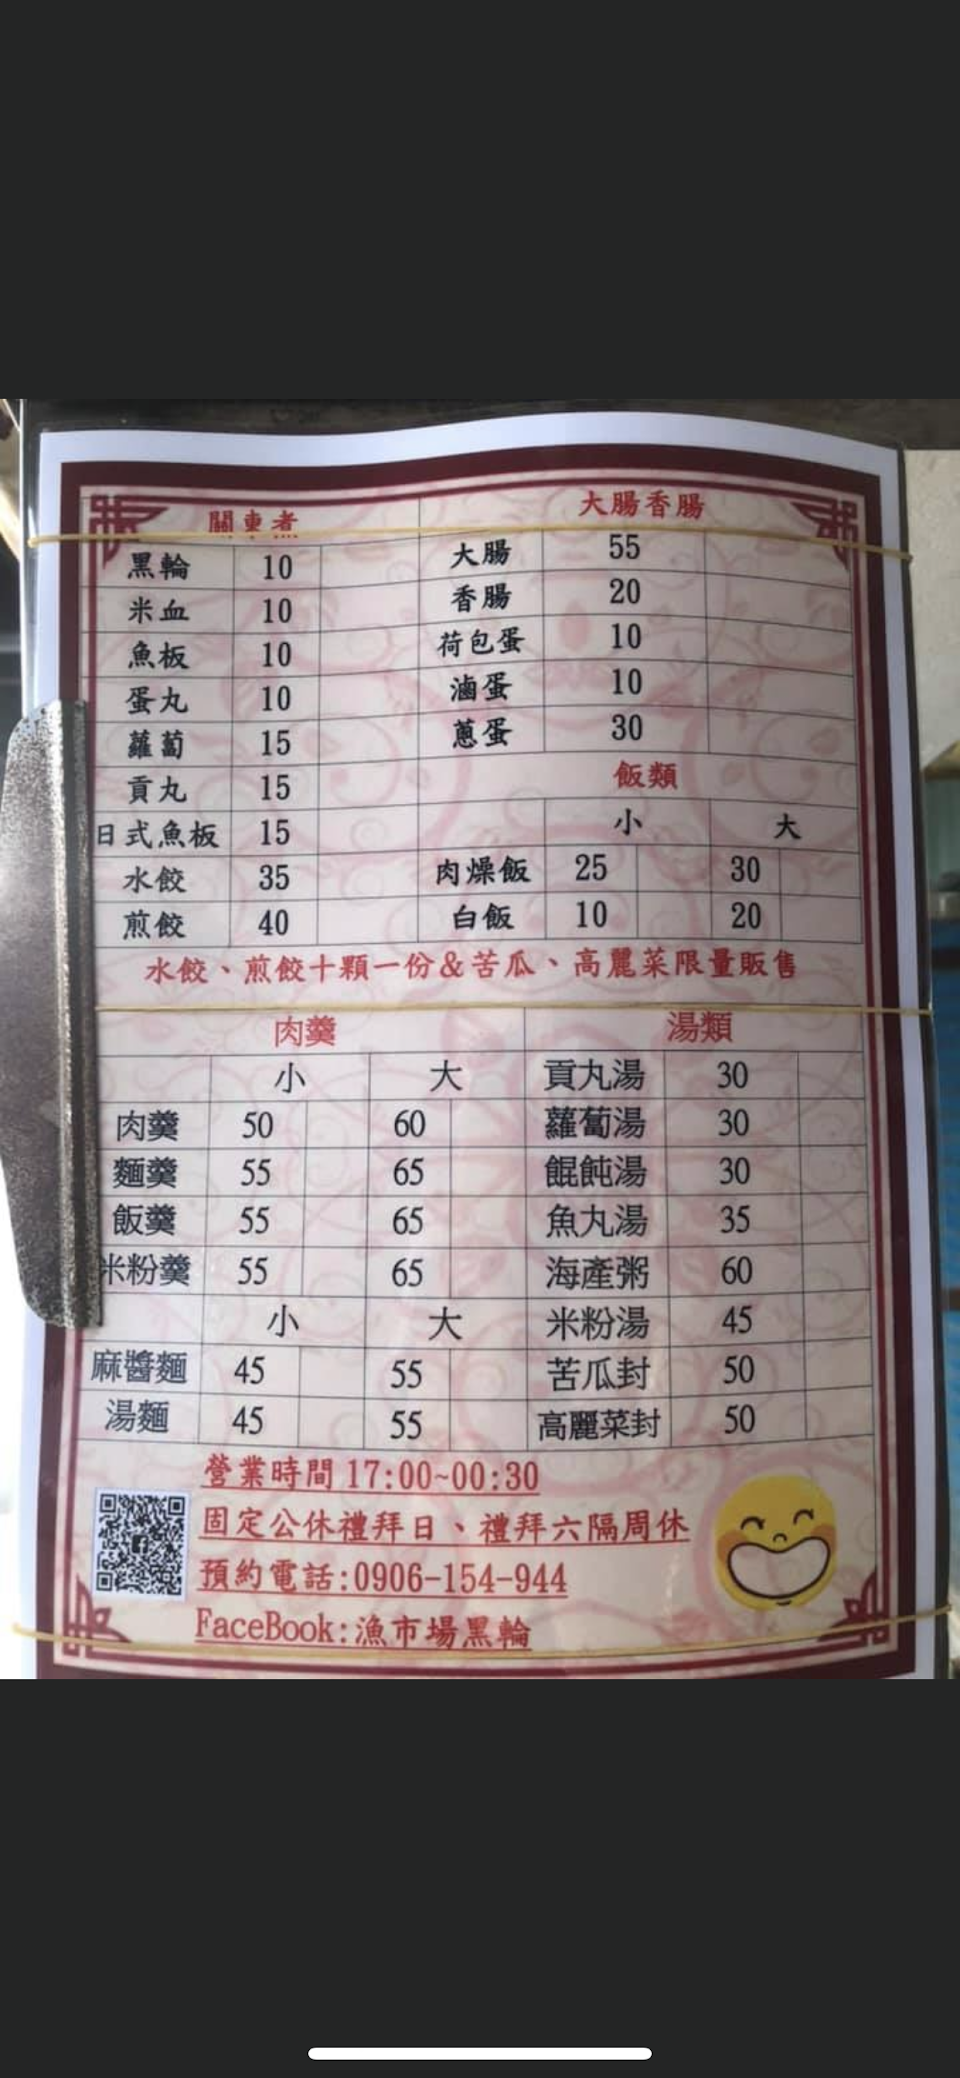 關東煮 大腸香腸
黑輪 10 大腸 55
米血 10 香腸 20
魚板 10 荷包蛋 10
蛋丸 10 滷蛋 10
蘿蔔 15 蔥蛋 30
貢丸 15 飯類
日式魚板 15 小 大
水餃 35 肉燥飯 25 30
煎餃 40 白飯 10 20
水餃、煎餃十顆一份&苦瓜、高麗菜限量販售
肉羹 湯類
小 大 貢丸湯 30
肉羹 50 60 蘿蔔湯 30
麵羹 55 65 餛飩湯 30
飯羹 55 65 魚丸湯 35
米粉羹 55 65 海產粥 60
小 大 米粉湯 45
麻醬麵 45 55 苦瓜封 50
湯麵 45 55 高麗菜封 50
營業時間 17:00~00:30
固定公休禮拜日、禮拜六隔周休
預約電話:0906-154-944
FaceBook:漁市場黑輪